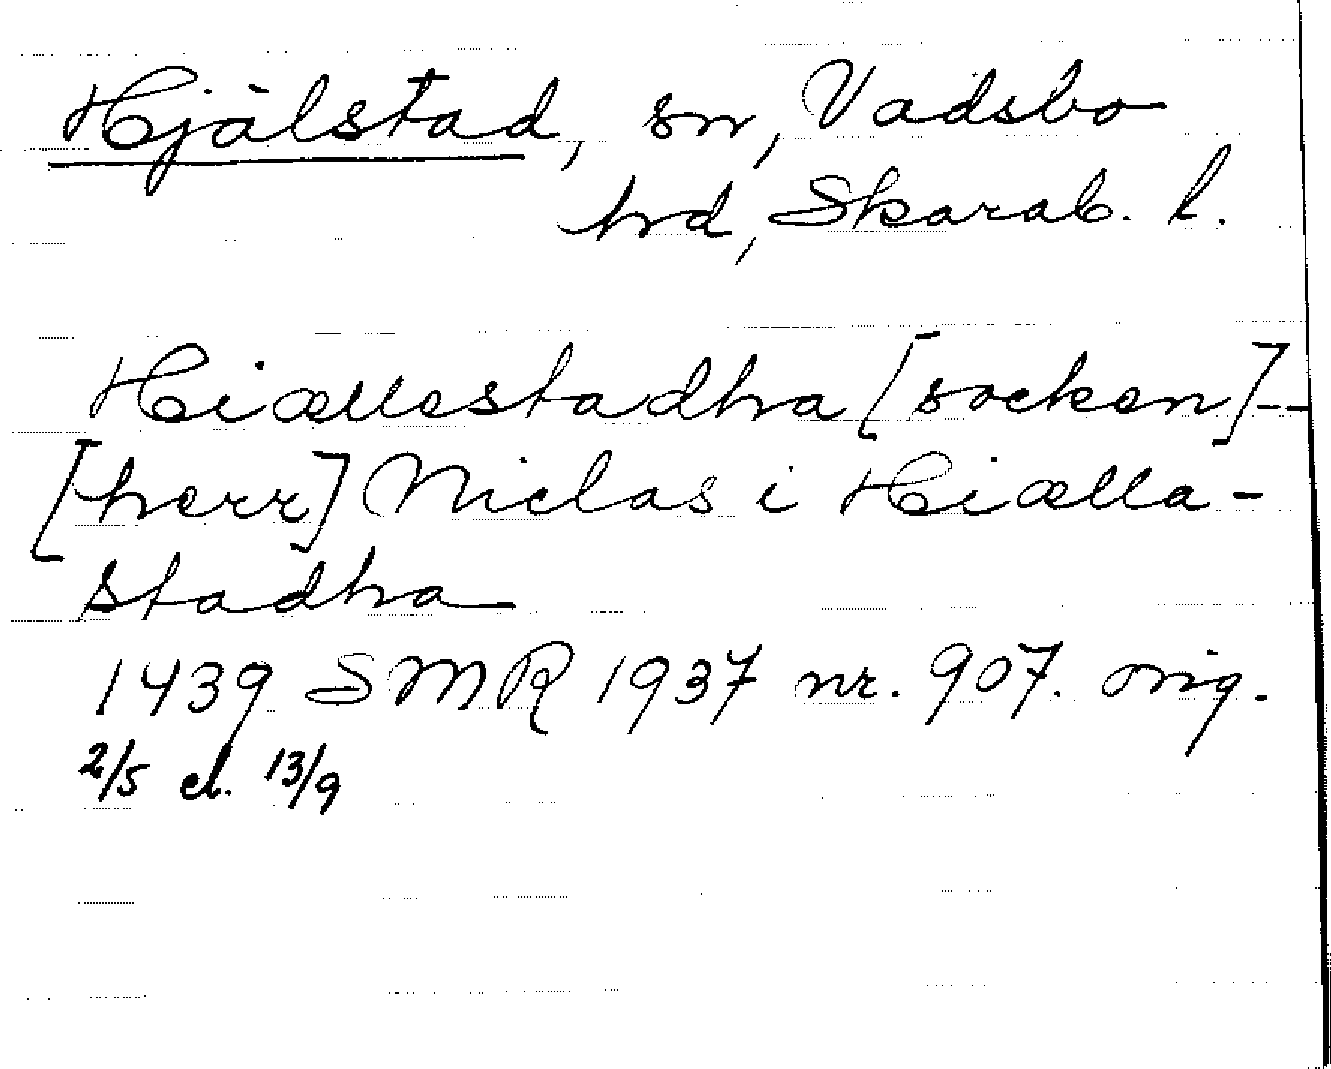 Hjälstad, sn, Vadsbo
hrd, Skarab. l.
Hiællestadha [socken] --
[herr] Niclas i Hiælla-
stadha
1439 SMR 1937 nr. 907. orig.
2/5 el. 13/9